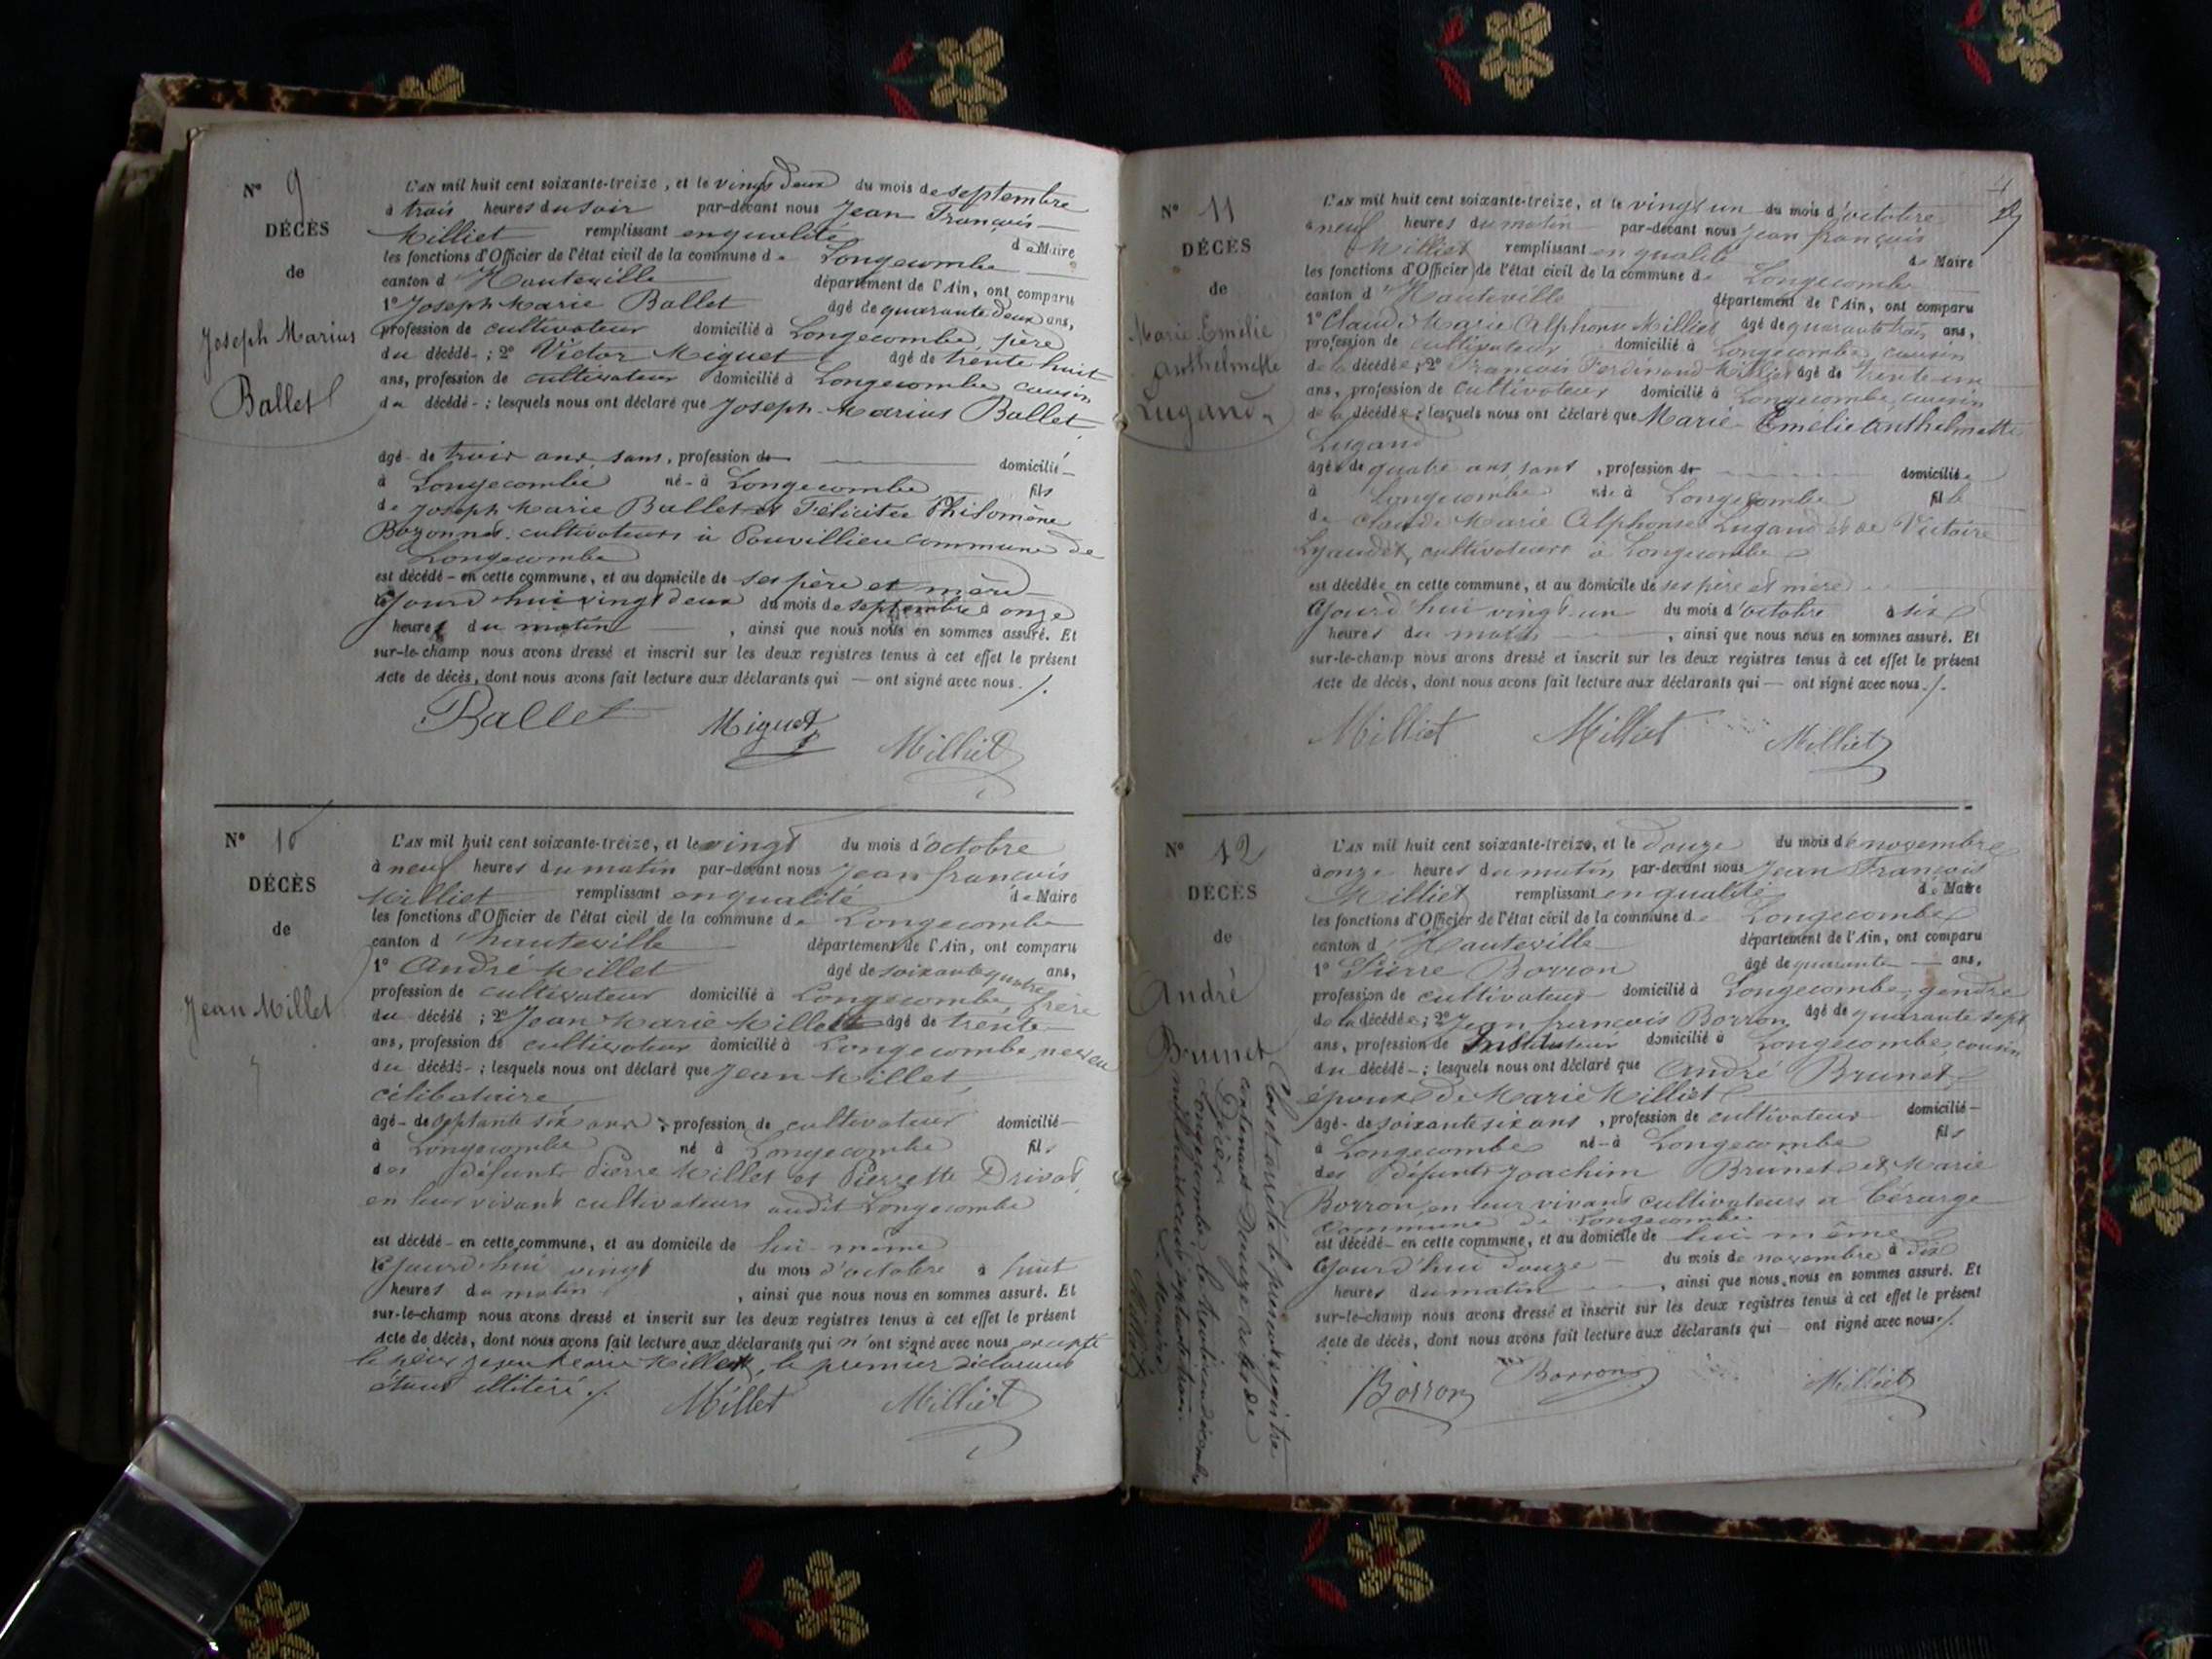 N° 9
DÉCÈS
de
Joseph Marius
Ballet
L'AN mil huit cent soixante-treize, et le vingt deux du mois de septembre
à trois heures du soir par-devant nous Jean François
Milliet remplissant en qualité de Maire
les fonctions d'Officier de l'état civil de la commune de Longecombe
canton d'Hauteville département de l'Ain, ont comparu
1° Joseph Marie Ballet âgé de quarante deux ans,
profession de cultivateur domicilié à Longecombe, père
du décédé - ; 2° Victor Miguet âgé de trente huit
ans, profession de cultivateur domicilié à Longecombe cousin
du décédé - ; lesquels nous ont déclaré que Joseph-Marius Ballet
âgé - de trois ans, sans, profession de domicilié -
à Longecombe né - à Longecombe fils
de Joseph Marie Ballet et Félicitée Philomène
Bozonnet cultivateurs à Pouvillieu commune de
Longecombe
est décédé - en cette commune, et au domicile de ses père et mère
cejourd'hui vingt deux du mois de septembre à onze
heures du matin, ainsi que nous nous en sommes assuré. Et
sur-le-champ nous avons dressé et inscrit sur les deux registres tenus à cet effet le présent
Acte de décès, dont nous avons fait lecture aux déclarants qui — ont signé avec nous ./.
Ballet Miguet Milliet
N° 10
DÉCÈS
de
Jean Millet
L'AN mil huit cent soixante-treize, et le vingt du mois d'octobre
à neuf heures du matin par-devant nous Jean françois
Milliet remplissant en qualité de Maire
les fonctions d'Officier de l'état civil de la commune de Longecombe
canton d'hauteville département de l'Ain, ont comparu
1° André Millet âgé de soixante quatre ans,
profession de cultivateur domicilié à Longecombe, frère
du décédé ; 2° Jean Marie Millet âgé de trente
ans, profession de cultivateur domicilié à Longecombe, neveu
du décédé - ; lesquels nous ont déclaré que Jean Millet,
célibataire,
âgé - de septante six ans, profession de cultivateur domicilié -
à Longecombe né à Longecombe fils
des défunts Pierre Millet et Pierrette Drivat,
en leur vivant cultivateurs audit Longecombe
est décédé - en cette commune, et au domicile de lui-même
cejourd'hui vingt du mois d'octobre à huit
heures du matin, ainsi que nous nous en sommes assuré. Et
sur-le-champ nous avons dressé et inscrit sur les deux registres tenus à cet effet le présent
Acte de décès, dont nous avons fait lecture aux déclarants qui n'ont signé avec nous excepté
le sieur Jean Marie Millet, le premier déclarant
étant illitéré ./. Millet Milliet
N° 11
DÉCÈS
de
Marie-Emélie
Anthelmette
Lugand
L'AN mil huit cent soixante-treize, et le vingt un du mois d'octobre
à neuf heures du matin par-devant nous Jean françois
Milliet remplissant en qualité de Maire
les fonctions d'Officier de l'état civil de la commune de Longecombe
canton d'Hauteville département de l'Ain, ont comparu
1° Claude Marie Alphonse Milliet âgé de quarante trois ans,
profession de cultivateur domicilié à Longecombe, cousin
de la décédée ; 2° François Ferdinand Milliet âgé de trente un
ans, profession de cultivateur domicilié à Longecombe, cousin
de la décédée ; lesquels nous ont déclaré que Marie-Emélie Anthelmette
Lugand
âgée de quatre ans, sans, profession de domiciliée
à Longecombe née à Longecombe fille
de Claude Marie Alphonse Lugand et de Victoire
Lyaudet, cultivateurs à Longecombe
est décédée en cette commune, et au domicile de ses père et mère
cejourd'hui vingt-un du mois d'octobre à six
heures du matin, ainsi que nous nous en sommes assuré. Et
sur-le-champ nous avons dressé et inscrit sur les deux registres tenus à cet effet le présent
Acte de décès, dont nous avons fait lecture aux déclarants qui — ont signé avec nous ./.
Milliet Milliet Milliet
N° 12
DÉCÈS
de
André
Brunet
L'AN mil huit cent soixante-treize, et le douze du mois de novembre
à onze heures du matin par-devant nous Jean François
Milliet remplissant en qualité de Maire
les fonctions d'Officier de l'état civil de la commune de Longecombe
canton d'Hauteville département de l'Ain, ont comparu
1° Pierre Borron âgé de quarante — ans,
profession de cultivateur domicilié à Longecombe, gendre
de la décédée ; 2° Jean françois Borron, âgé de quarante sept
ans, profession de Instituteur domicilié à Longecombe, cousin
du décédé - ; lesquels nous ont déclaré que André Brunet,
époux de Marie Milliet
âgé - de soixante six ans, profession de cultivateur domicilié -
à Longecombe né - à Longecombe fils
des défunts Joachim Brunet et Marie
Borron, en leur vivant cultivateurs à
commune de Longecombe
est décédé - en cette commune, et au domicile de lui-même
cejourd'hui douze du mois de novembre à dix
heures du matin, ainsi que nous nous en sommes assuré. Et
sur-le-champ nous avons dressé et inscrit sur les deux registres tenus à cet effet le présent
Acte de décès, dont nous avons fait lecture aux déclarants qui — ont signé avec nous ./.
Borron Borron Milliet
Clos et arrêté le présent registre
contenant Douze actes de
Décès.
Longecombe le trente un décembre
mil huit cent septante trois.
Le Maire
Milliet